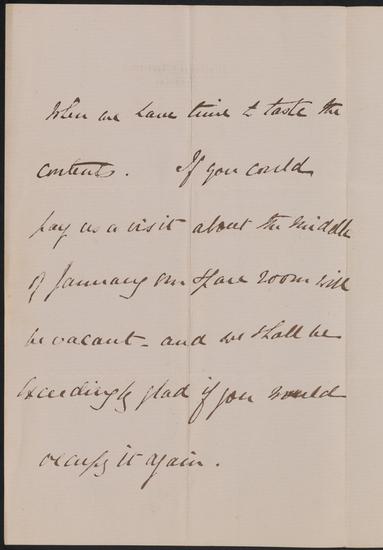 When we have time to taste the
contents. If you could
pay us a visit about the middle
of January our spare room will
be vacant - and we shall be
exceedingly glad if you would
occupy it again.